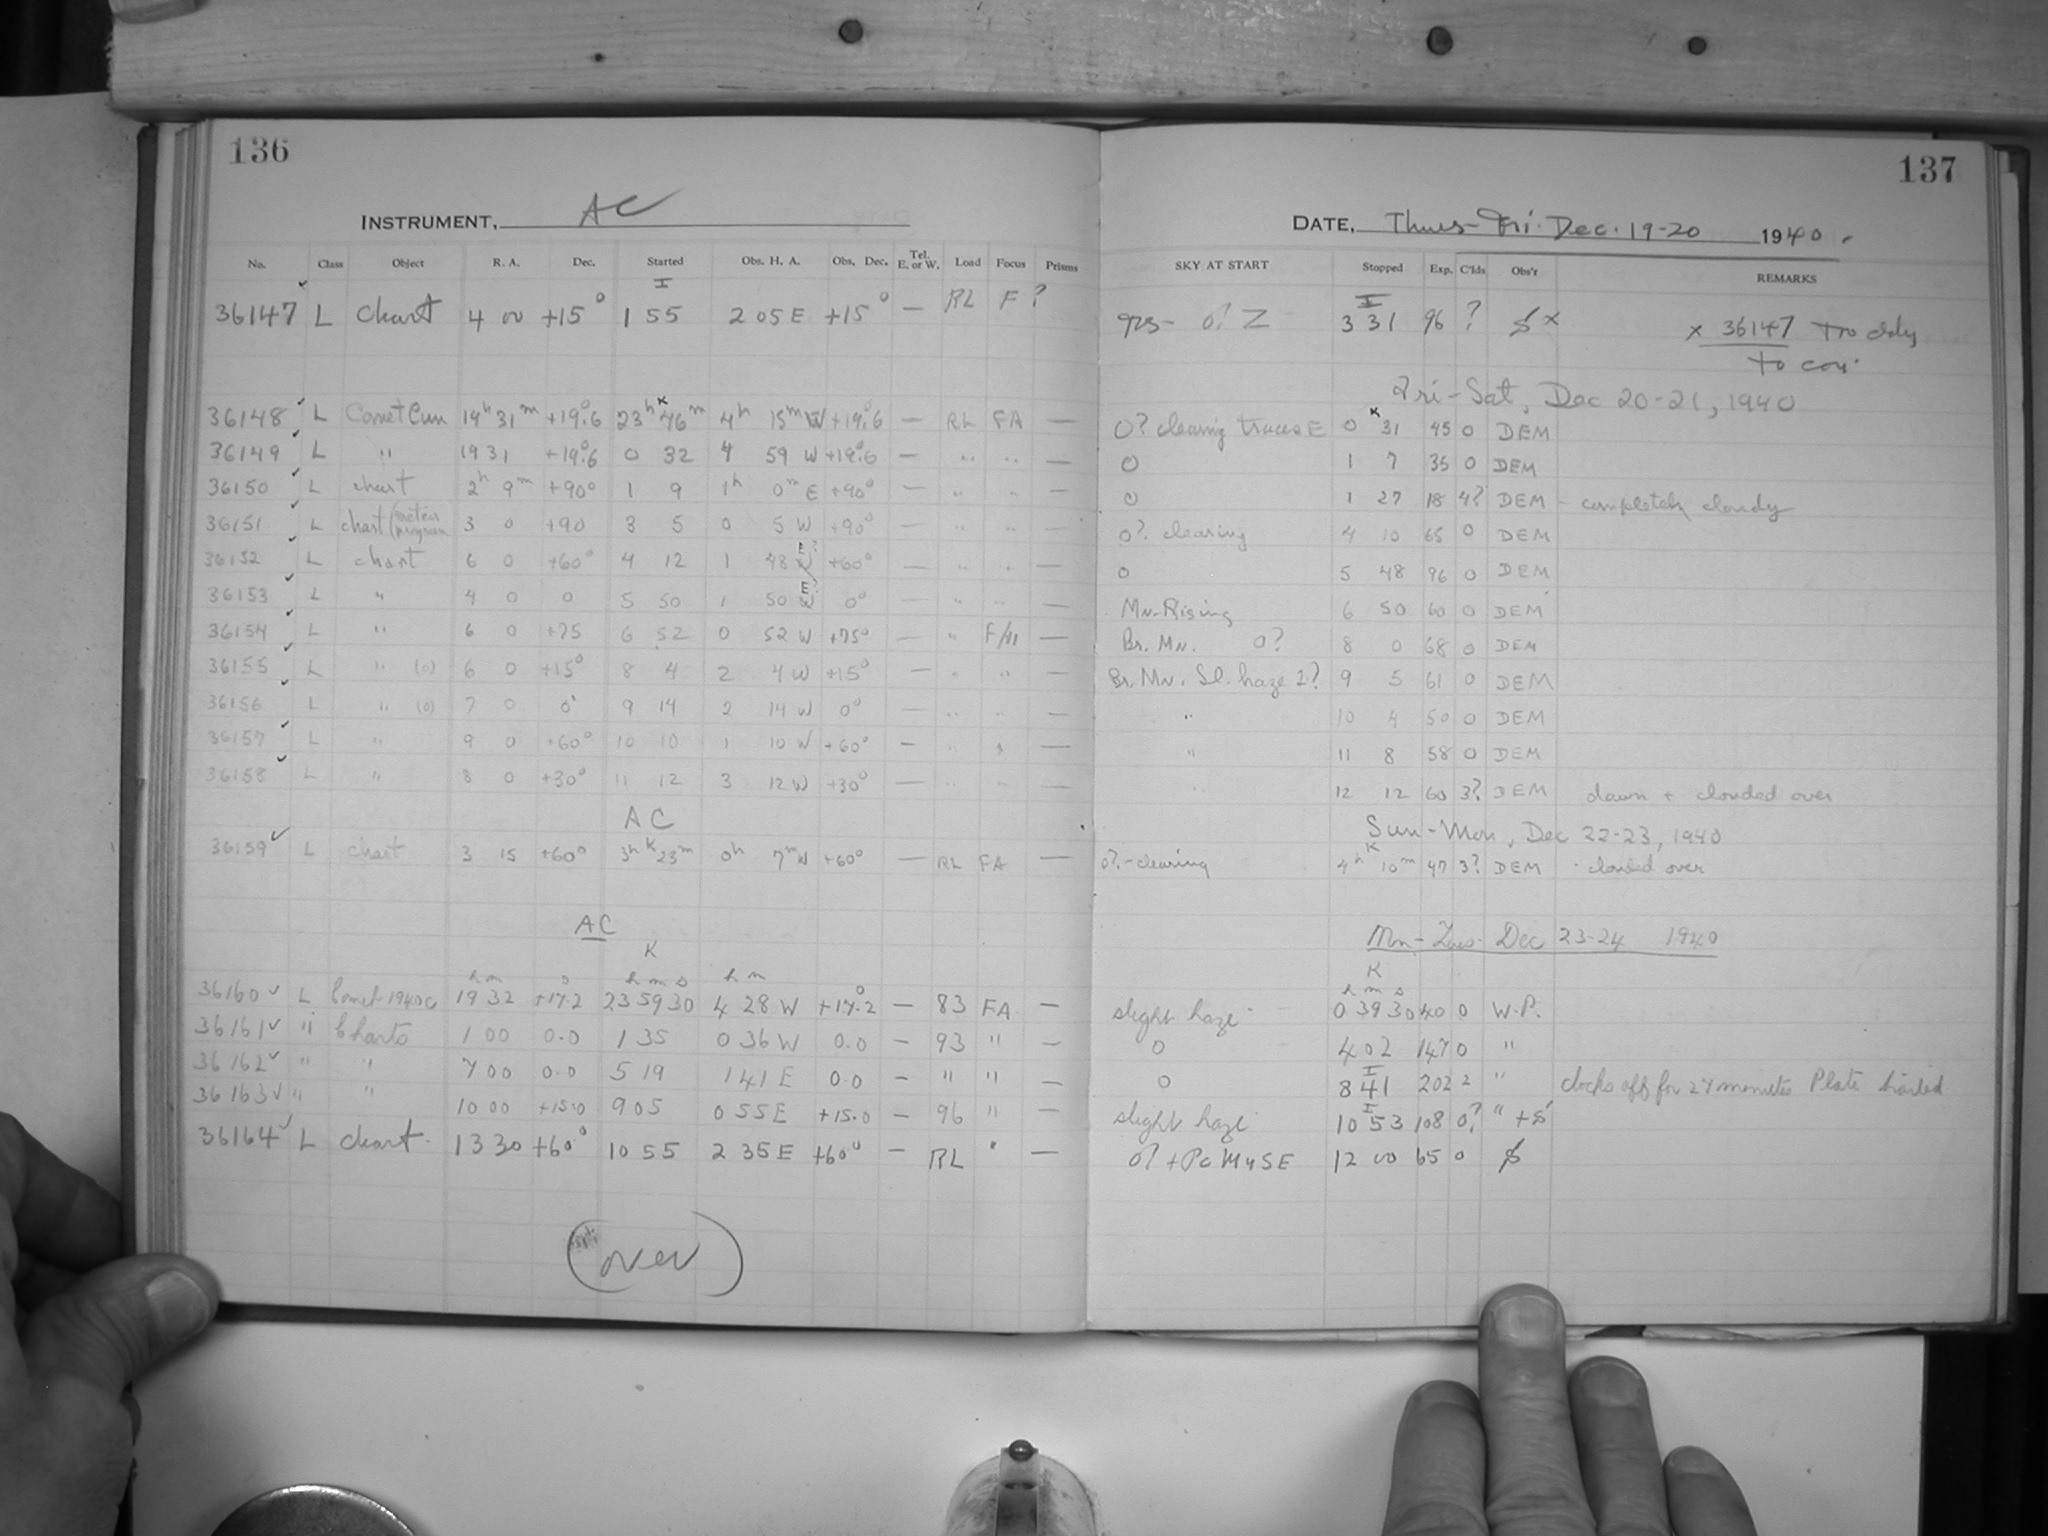 136
INSTRUMENT, AC
No. Class Object R. A. Dec. Started Obs. H. A. Obs. Dec. Tel. E. or W. Load Focus Prisms
I
36147 L Chart 4 00 +15° 1 55 2 05 E +15° — RL F ?
36148 L Comet Cun 19h 31m +19°.6 23h K 46m 4h 15m W +19°.6 — RL FA —
36149 L " 19 31 +19°.6 0 32 4 59 W +19°.6 — " " —
36150 L chart 2h 9m +90° 1 9 1h 0m E +90° — " " —
36151 L chart (meteor program 3 0 +90 3 5 0 5 W +90° — " " —
36152 L chart 6 0 +60° 4 12 1 48 W E? +60° — " " —
36153 L " 4 0 0 5 50 1 50 W E? 0° — " " —
36154 L " 6 0 +75 6 52 0 52 W +75° — " F/11 —
36155 L " (0) 6 0 +15° 8 4 2 4 W +15° — " " —
36156 L " (0) 7 0 0° 9 14 2 14 W 0° — " " —
36157 L " 9 0 +60° 10 10 1 10 W +60° — " " —
36158 L " 8 0 +30° 11 12 3 12 W +30° — " " —
AC
36159 L chart 3 15 +60° 3h K 23m 0h 7m W +60° — RL FA —
AC
K
h m ° h m s h m
36160 L Comet 1940c 19 32 +17.2 23 59 30 4 28 W +17°.2 — 83 FA —
36161 " Charts 1 00 0.0 1 35 0 36 W 0.0 — 93 " —
36162 " " 7 00 0.0 5 19 1 41 E 0.0 — " " —
36163 " " 10 00 +15.0 9 05 0 55 E +15.0 — 96 " —
36164 L chart. 13 30 +60° 10 55 2 35 E +60° — RL " —
over
137
DATE, Thurs-Fri. Dec. 19-20 1940.
SKY AT START Stopped Exp. C'lds Obs'r REMARKS
I
0? Z 3 31 96 ? S x x 36147 Tro ddy
to cor.
Fri-Sat, Dec 20-21, 1940
0? clearing traces E 0 K 31 45 0 DEM
0 1 7 35 0 DEM
0 1 27 18 4? DEM - completely cloudy
0? clearing 4 10 65 0 DEM
0 5 48 96 0 DEM
Mn-Rising 6 50 60 0 DEM
Br. Mn. 0? 8 0 68 0 DEM
Br. Mn. Sl. haze 2? 9 5 61 0 DEM
" 10 4 50 0 DEM
" 11 8 58 0 DEM
" 12 12 60 3? DEM dawn + clouded over
Sun-Mon, Dec 22-23, 1940
0?-clearing 4h K 10m 47 3? DEM - clouded over
Mon-Tues- Dec 23-24 1940
K
h m s
slight haze 0 39 30 40 0 W.P.
0 4 02 147 0 "
I
0 8 41 202 2 " clocks off for 27 minutes Plate trailed
I
slight haze 10 53 108 0? " + S
0? + Pc Mn SE 12 00 65 0 S